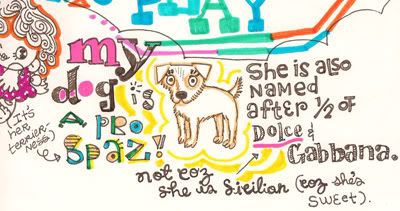 PLAY
my
dog is
A PRO
SPAZ!
(It's
her
terrier-
ness)
She is also
named
after 1/2 of
Dolce &
Gabbana.
not coz
she is sicilian (coz she's
sweet).